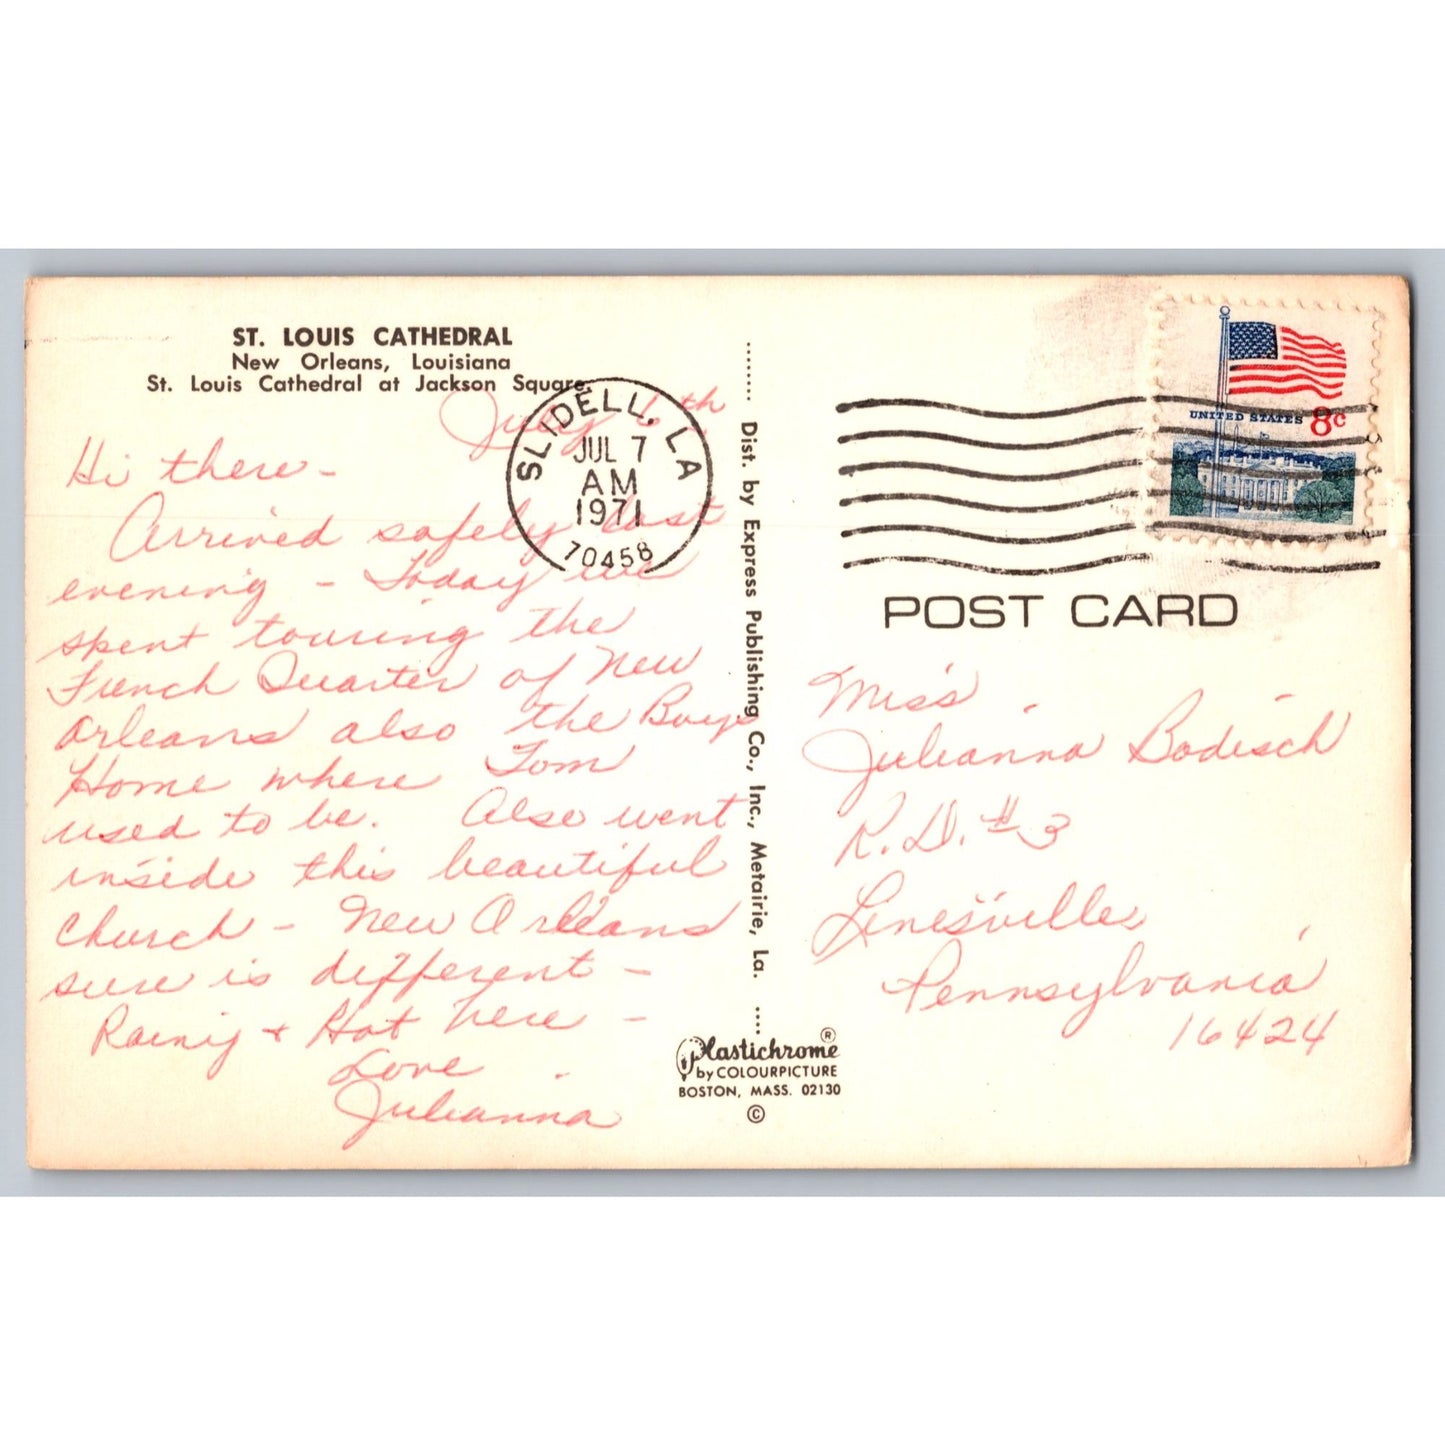 ST. LOUIS CATHEDRAL
New Orleans, Louisiana
St. Louis Cathedral at Jackson Square.
July 6th
Hi there -
Arrived safely last
evening - Today we
spent touring the
French Quarter of New
Orleans also the Boys
Home where Tom
used to be. Also went
inside this beautiful
church - New Orleans
sure is different -
Rainy & Hot here -
Love
Julianna
SLIDELL, LA
JUL 7
AM
1971
70458
Dist. by Express Publishing Co., Inc., Metairie, La.
Plastichrome ®
by COLOURPICTURE
BOSTON, MASS. 02130
©
UNITED STATES 8c
POST CARD
Miss
Julianna Bodisch
R.D. #3
Linesville
Pennsylvania
16424